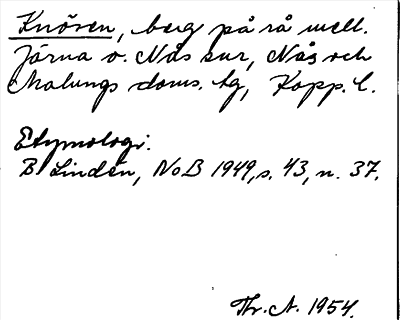 Knören, berg på rå mell.
Järna o. Nås snr, Nås och
Malungs doms. hg, Kopp. l.
Etymologi.
B Lindén, NoB 1949, s. 43, n. 37.
Thr. A. 1954.